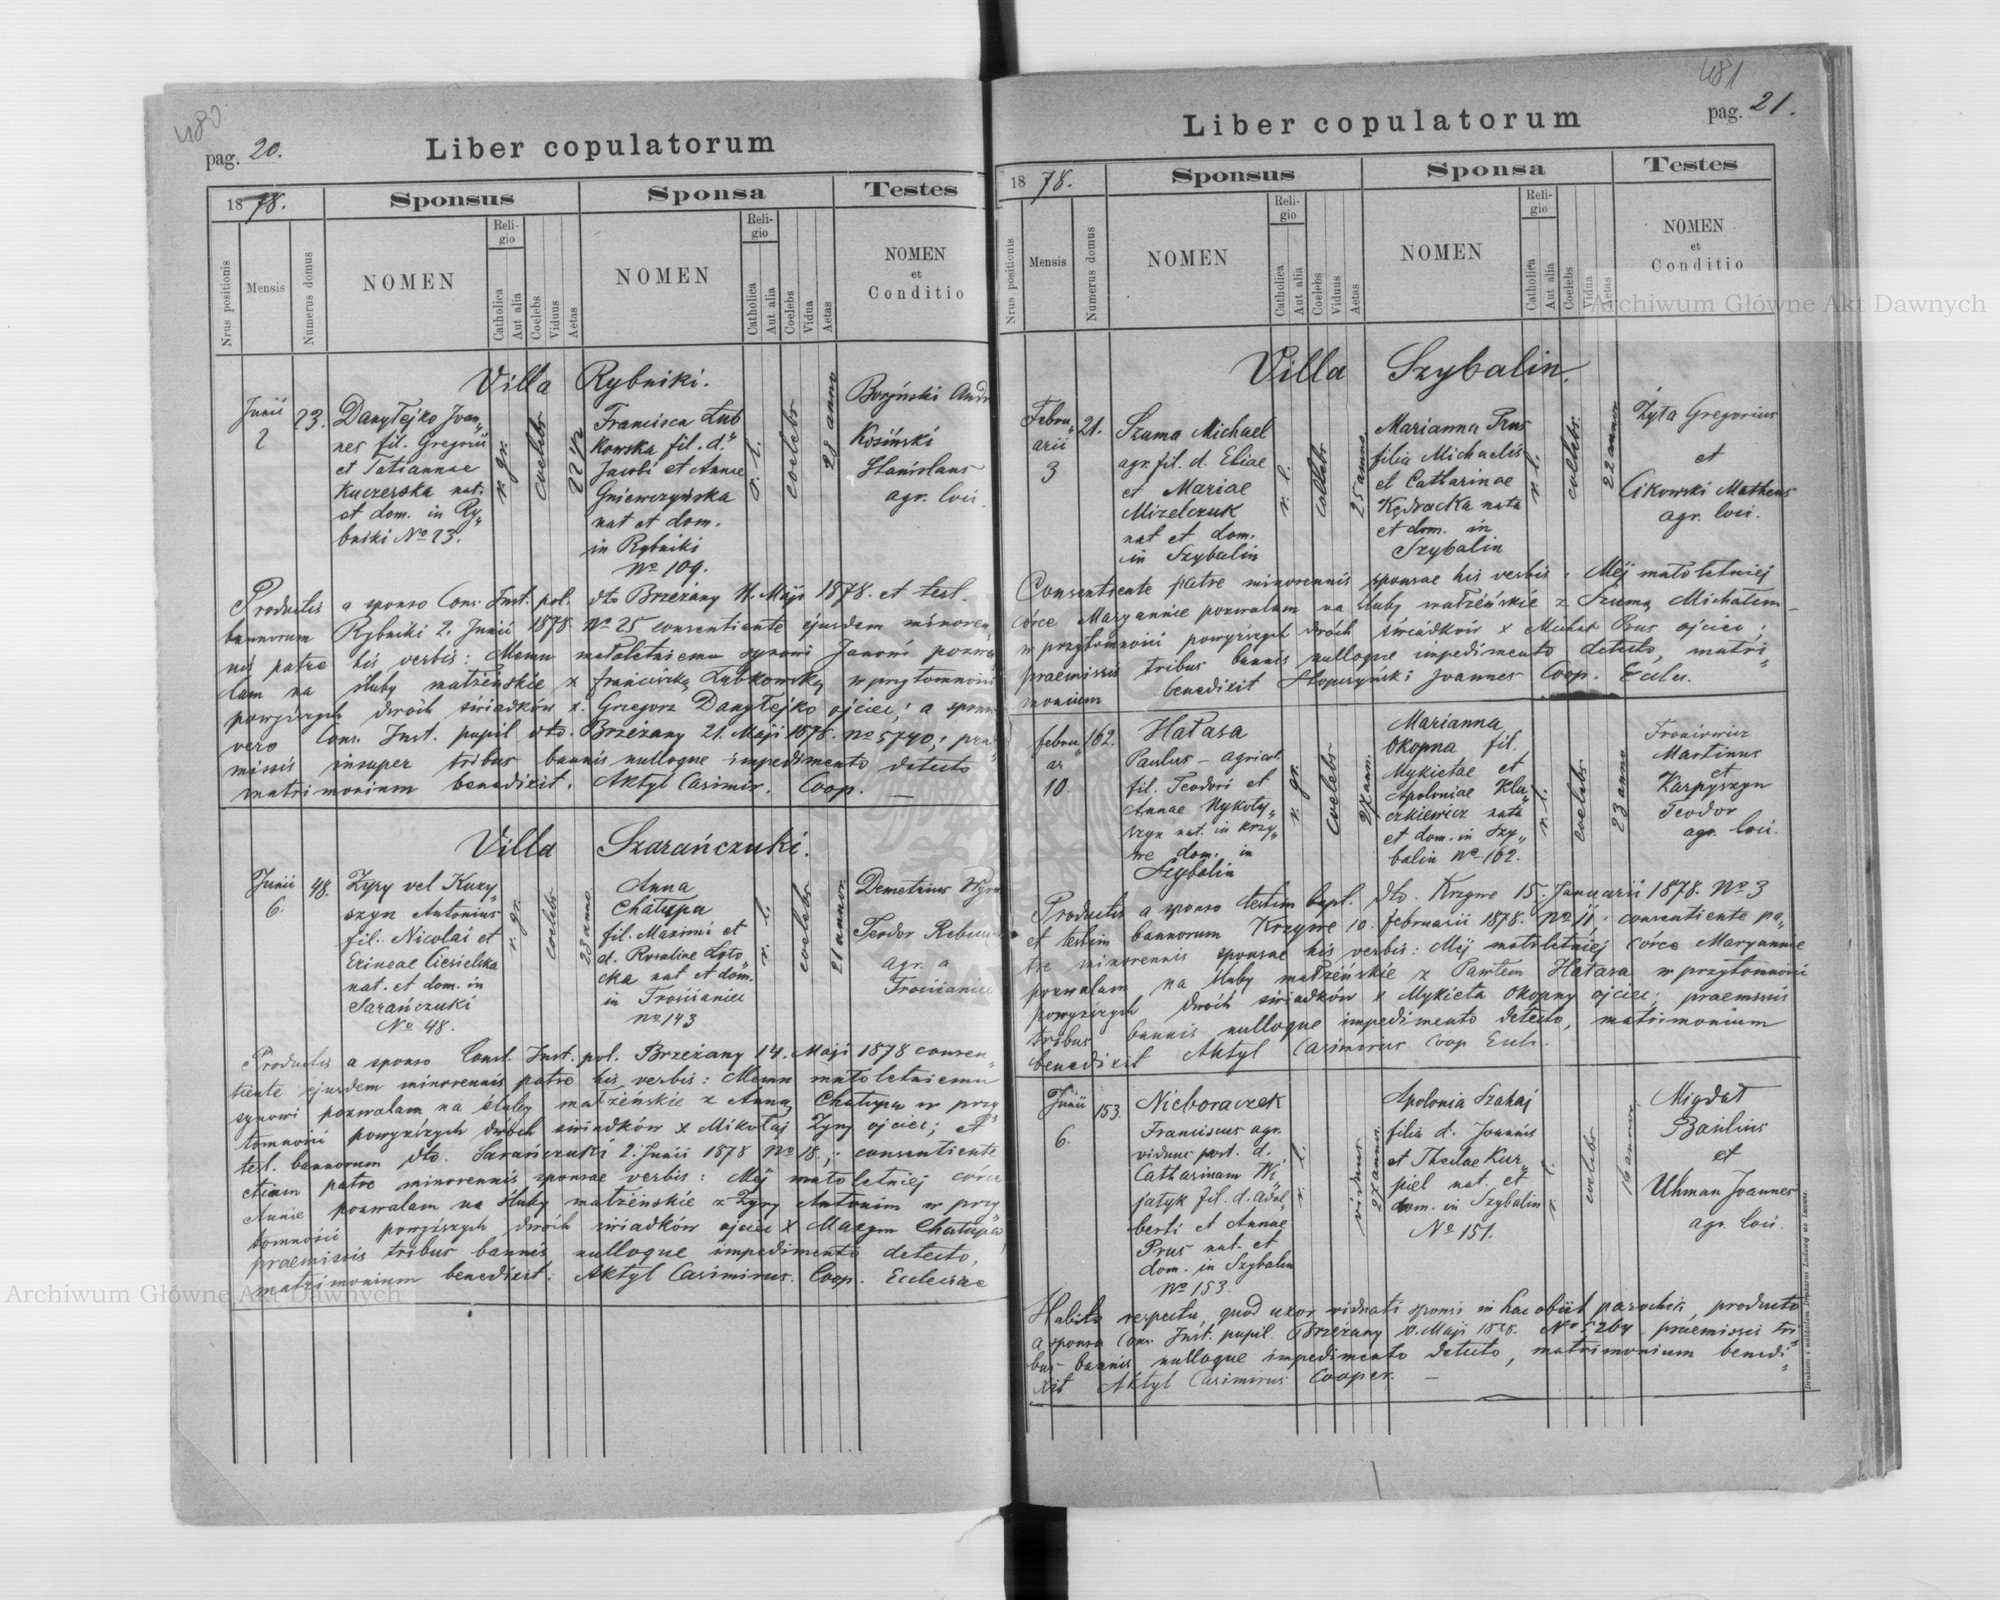 480
pag. 20.
Liber copulatorum
1878.
Sponsus
Sponsa
Testes
Nrus positionis
Mensis
Numerus domus
NOMEN
Religio
Catholica
Aut alia
Coelebs
Viduus
Aetas
NOMEN
Religio
Catholica
Aut alia
Coelebs
Vidua
Aetas
NOMEN
et
Conditio
Villa Rybniki.
Junii
2
23.
Danyłejko Joan„
nes fil. Gregorii
et Tatiannae
Kuczerska nat.
et dom. in Ry„
bniki No 23.
r. gr.
coelebs
22 1/2
Francisca Łub
kowska fil. d.
Jacobi et Annae
Gniewczyńska
nat et dom.
in Rybniki
No 109.
r. l.
coelebs
28 anno
Boryński Andr
Kosiński
Stanislaus
agr. loci.
Productis a sponso Cons. Inst. pol. dto Brzeżany 11. Maji 1878. et test.
bannorum Rybniki 2. Junii 1878. No 25 consentiente ejusdem minoren„
nis patre his verbis: Memu małoletniemu synowi Janowi pozwa
lam na śluby małżeńskie z Franciszką Łubkowską w przytomności
powyższych dwóch świadków x. Grzegorz Danyłejko ojciec; a spon
vero Cons. Inst. pupil dto. Brzeżany 21. Maji 1878. No 5740; prae
missis insuper tribus bannis nulloque impedimento detecto
matrimonium benedixit. Aktyl Casimir. Coop. —
Villa Szarańczuki.
Junii
6.
48.
Zyry vel Kuzy„
szyn Antonius
fil. Nicolai et
Erineae Ciesielska
nat. et dom. in
Sarańczuki
No 48.
r. gr.
coelebs
23 anno
Anna
Chałupa
fil. Maximi et
d. Rosaliae Łoto„
cka nat et dom.
in Trościaniec
no 143
r. l.
coelebs
21 annor.
Demetrius
Teodor
agr. a
Trościaniec
Productis a sponso Const. Inst. pol. Brzeżany 14. Maji 1878 consen„
tiente ejusdem minorennis patre his verbis: Memu małoletniemu
synowi pozwalam na śluby małżeńskie z Anną Chałupa w przy
tomności powyższych dwóch świadków x Mikołaj Zyry ojciec; et
test. bannorum dto. Sarańczuki 2. Junii 1878 No 18.; consentiente
etiam patre minorennis sponsae verbis: Mej małoletniej córce
Annie pozwalam na śluby małżeńskie z Zyry Antonim w przy„
tomności powyższych dwóch świadków ojciec x Maxym Chałupa
praemissis tribus bannis nulloque impedimento detecto,
matrimonium benedixit: Aktyl Casimirus. Coop. Ecclesiae
481
pag. 21.
Liber copulatorum
1878.
Sponsus
Sponsa
Testes
Nrus positionis
Mensis
Numerus domus
NOMEN
Religio
Catholica
Aut alia
Coelebs
Viduus
Aetas
NOMEN
Religio
Catholica
Aut alia
Coelebs
Vidua
Aetas
NOMEN
et
Conditio
Villa Szybalin.
Febru„
arii
3
21.
Szuma Michael
agr. fil. d. Eliae
et Mariae
Mizelczuk
nat et dom.
in Szybalin
r. l.
coelebs
25 annor.
Marianna Prus
filia Michaelis
et Catharinae
Kędracka nata
et dom. in
Szybalin
r. l.
coelebs.
22 annor
Żyła Gregorius
et
Cikowski Matheus
agr. loci.
Consentiente patre minorennis sponsae his verbis: Mej małoletniej
córce Maryannie pozwalam na śluby małżeńskie z Szumą Michałem —
w przytomności powyższych dwóch świadków x Michał Prus ojciec;
praemissis tribus bannis nulloque impedimento detecto, matri„
monium benedixit Słopczyński Joannes Coop. Eccles.
febru„
ar
10.
162.
Hałasa
Paulus – agricol.
fil. Teodori et
Annae Nykoły„
szyn nat. in Krzy„
we dom. in
Szybalin
r. gr.
coelebs
27 ann.
Marianna
Okopna fil.
Mykietae et
Apoloniae Klu„
czkiewicz nata
et dom. in Szy„
balin No 162.
r. l.
coelebs
23 anno
Martinus
et
Karpyszyn
Teodor
agr. loci.
Productis a sponso testim bapt. dto. Krzywe 15. Januarii 1878. No 3
et testim bannorum Krzywe 10. februarii 1878. No 11; consentiente pa„
tre minorennis sponsae his verbis: Mej małoletniej córce Maryannie
pozwalam na śluby małżeńskie z Pawłem Hałasa w przytomności
powyższych dwóch świadków x Mykieta Okopny ojciec; praemissis
tribus bannis nulloque impedimento detecto, matrimonium
benedixit Aktyl Casimirus Coop Eccl.
Junii
6.
153.
Nieboraczek
Franciscus agr.
viduus post. d.
Catharinam Wi„
jatyk fil. d. Adal„
berti et Annae
Prus nat. et
dom. in Szybalin
No 153.
r. l.
viduus
27 annor.
Apolonia Szahaj
filia d. Joannis
et Theclae Kur„
piel nat. et
dom. in Szybalin
No 151.
r. l.
coelebs
16 annor.
Migdał
Basilius
et
Uhman Joannes
agr. loci.
Habito respectu, quod uxor viduati sponsi in hac obiit parochia, producto
a sponso Cons. Inst. pupil. Brzeżany 10. Maji 1878. No 5264. praemissis tri„
bus bannis nulloque impedimento detecto, matrimonium benedi„
xit Aktyl Casimirus Cooper. —
Archiwum Główne Akt Dawnych
Archiwum Główne Akt Dawnych